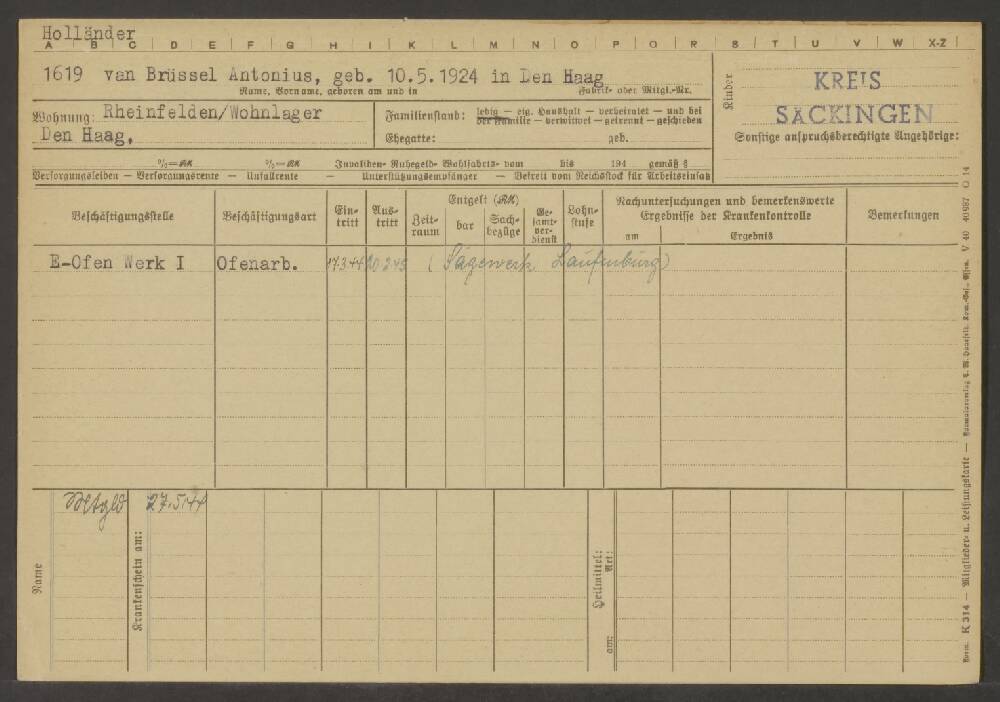 Holländer
A B C D E F G H I K L M N O P Q R S T U V W X-Z
1619 van Brüssel Antonius, geb. 10.5.1924 in Den Haag
Name, Vorname, geboren am und in Fabrik- oder Mitgl.-Nr.
Kinder
KREIS
SÄCKINGEN
Wohnung: Rheinfelden/Wohnlager
Den Haag,
Familienstand: ledig — eig. Haushalt — verheiratet — und bei
der Familie — verwitwet — getrennt — geschieden
Ehegatte: geb.
Sonstige anspruchsberechtigte Angehörige:
%=RM %=RM Invaliden- Ruhegeld- Wohlfahrts- vom bis 194 gemäß §
Versorgungsleiden — Versorgungsrente — Unfallrente — Unterstützungsempfänger — Befreit vom Reichsstock für Arbeitseinsatz
Beschäftigungsstelle
Beschäftigungsart
Ein-
tritt
Aus-
tritt
Zeit-
raum
Entgelt (RM)
bar
Sach-
bezüge
Ge-
samt-
ver-
dienst
Lohn-
stufe
Nachuntersuchungen und bemerkenswerte
Ergebnisse der Krankenkontrolle
am Ergebnis
Bemerkungen
E-Ofen Werk I Ofenarb. 17.3.44 20.2.45 (Sägewerk Laufenburg)
27.5.44
Name
Krankenschein am:
Heilmittel:
Art:
am:
Form. K 314 — Mitglieder- u. Leistungskarte —
V 40 40987 O 14